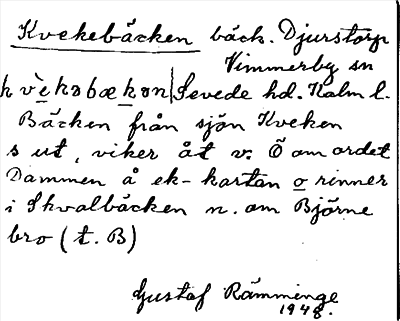 Kvekebäcken bäck. Djurstorp
Vimmerby sn
kvèkəbækən Sevede hd. Kalm l.
Bäcken från sjön Kveken
s ut, viker åt v. Ö om ordet
Dammen å ek-kartan o rinner
i Skvalbäcken n. om Björne
bro (t. B)
Gustaf Rämminge
1948.